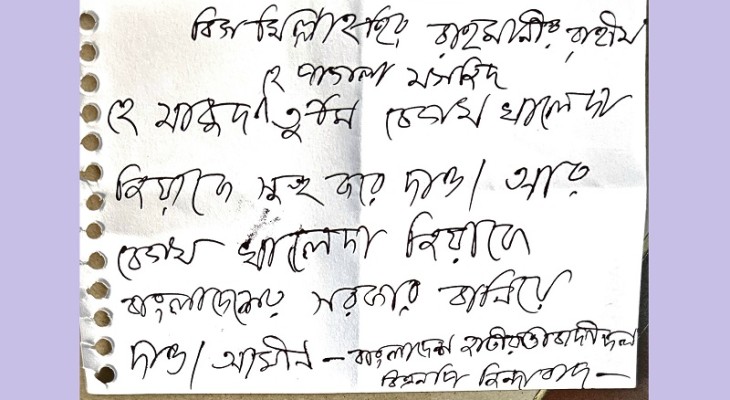 বিসমিল্লাহহির রাহমানীর রাহীম
হে পাগলা মসজিদ
হে মাবুদ তুমি বেগম খালেদা
জিয়াকে সুস্থ করে দাও। আর
বেগম খালেদা জিয়াকে
বাংলাদেশের সরকার বানিয়ে
দাও। আমীন – বাংলাদেশ জাতীয়তাবাদী দল
বিএনপি জিন্দাবাদ –